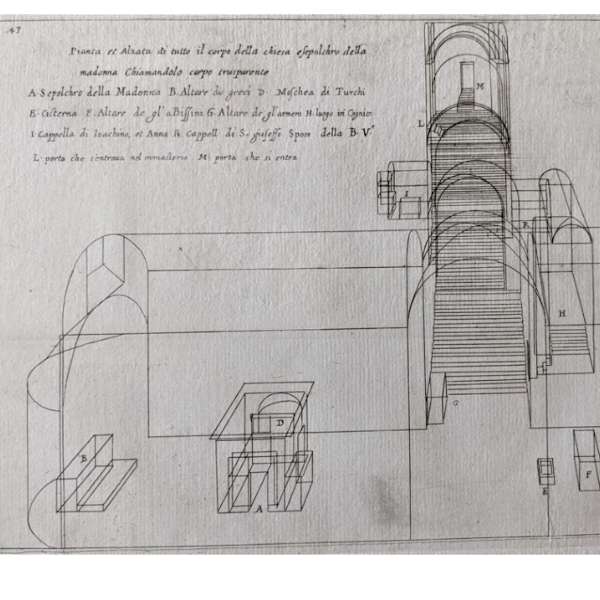 47
Pianta et Alzata di tutto il corpo della chiesa e sepolchro della
madonna Chiamandolo corpo trasparente
A Sepolchro della Madonna B. Altare de greci D Moschea di Turchi
E. Cisterna F. Altare de gl'aBissini G. Altare de gl'armeni H. luogo
I Cappella di Ioachino, et Anna K Cappell di S. gioseffe Sposo della B. V.
L. porta che entrava nel monasterio M. porta che si entra
M
L
I
K
H
G
D
B
A
E
F